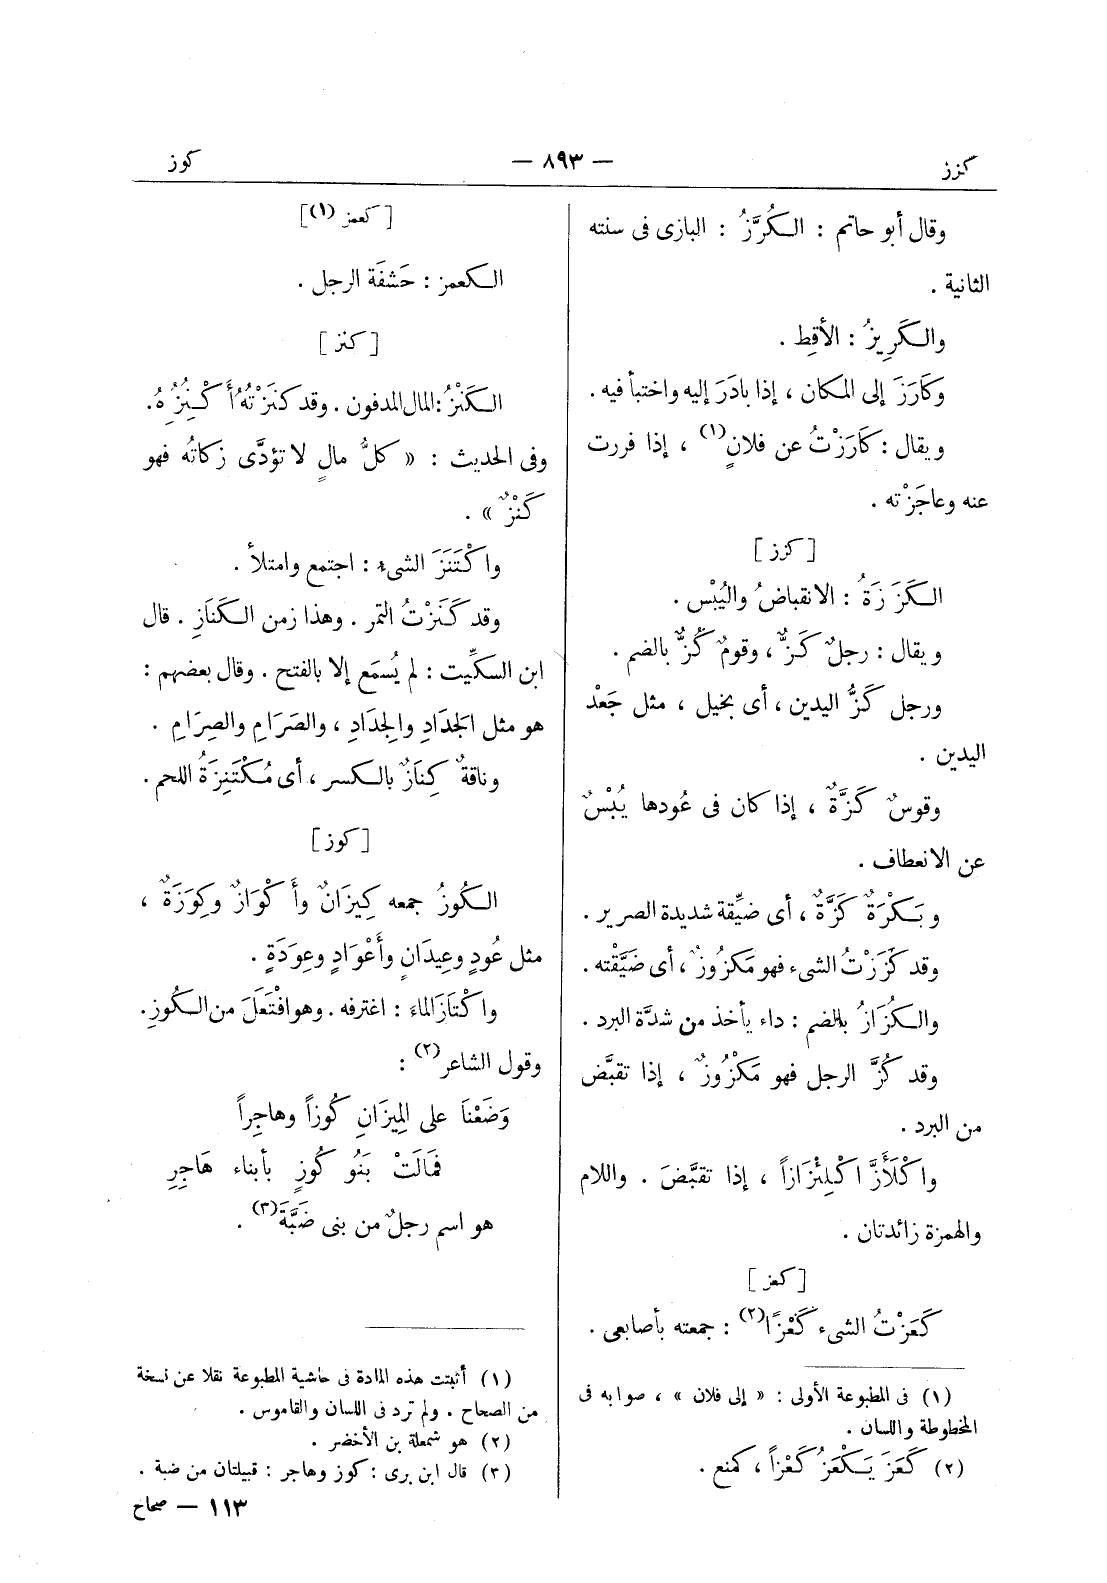 كرز
— ٨٩٣ —
كوز
وقال أبو حاتم : الكُرَّزُ : البازى فى سنته
الثانية .
والكَرِيزُ : الأقِط .
وكَارَزَ إلى المكان ، إذا بادَرَ إليه واختبأ فيه .
ويقال : كَارَزْتُ عن فلانٍ(١) ، إذا فررت
عنه وعاجَزْته .
[ كزز ]
الكَزَازَةُ : الانقباضُ واليُبْس .
ويقال : رجلٌ كَزٌّ ، وقومٌ كُزٌّ بالضم .
ورجل كَزُّ اليدين ، أى بخيل ، مثل جَعْد
اليدين .
وقوسٌ كَزَّةٌ ، إذا كان فى عُودها يُبْسٌ
عن الانعطاف .
وبَكْرَةٌ كَزَّةٌ ، أى ضيِّقة شديدة الصرير .
وقد كَزَزْتُ الشىء فهو مَكزُوزٌ ، أى ضَيَّقْته .
والكُزَازُ بالضم : داء يأخذ من شدَّة البرد .
وقد كُزَّ الرجل فهو مَكْزُوزٌ ، إذا تقبَّض
من البرد .
واكْلَأَزَّ اكْلِئْزَازاً ، إذا تقبَّضَ . واللام
والهمزة زائدتان .
[ كعز ]
كَعَزْتُ الشىء كَعْزًا(٢) : جمعته بأصابعى .
(١) فى المطبوعة الأولى : « إلى فلان » ، صوابه فى
المخطوطة واللسان .
(٢) كَعَزَ يَكْعَزُ كَعْزاً ، كمنع .
[ كعمز (١) ]
الكعمز : حَشفَة الرجل .
[ كنز ]
الكَنْزُ : المال المدفون . وقد كنَزْتُهُ أَكْنِزُهُ .
وفى الحديث : « كلُّ مالٍ لا تؤدَّى زكاتُه فهو
كَنْزٌ » .
واكْتَنَزَ الشىء : اجتمع وامتلأ .
وقد كَنَزْتُ التمر . وهذا زمن الكَنَازِ . قال
ابن السكِّيت : لم يُسمَع إلا بالفتح . وقال بعضهم :
هو مثل الجَدَادِ والجِدَادِ ، والصَرَامِ والصِرَامِ .
وناقةٌ كِنَازٌ بالكسر ، أى مُكْتَنِزَةُ اللحم .
[ كوز ]
الكُوزُ جمعه كِيزَانٌ وأَكْوَازٌ وكِوَزَةٌ ،
مثل عُودٍ وعِيدَانٍ وأَعْوَادٍ وعِوَدَةٍ .
واكْتَازَ الماءَ : اغترفه . وهو افْتَعَلَ من الكُوزِ .
وقول الشاعر(٢) :
وَضَعْنَا على المِيزَانِ كُوزاً وهاجِراً
فَمَالَتْ بَنُو كُوزٍ بأبناء هَاجِرِ
هو اسم رجلٌ من بنى ضَبَّةَ(٣) .
(١) أثبتت هذه المادة فى حاشية المطبوعة نقلا عن نسخة
من الصحاح . ولم ترد فى اللسان والقاموس .
(٢) هو شمعلة بن الأخضر .
(٣) قال ابن برى : كوز وهاجر : قبيلتان من ضبة .
١١٣ — صحاح